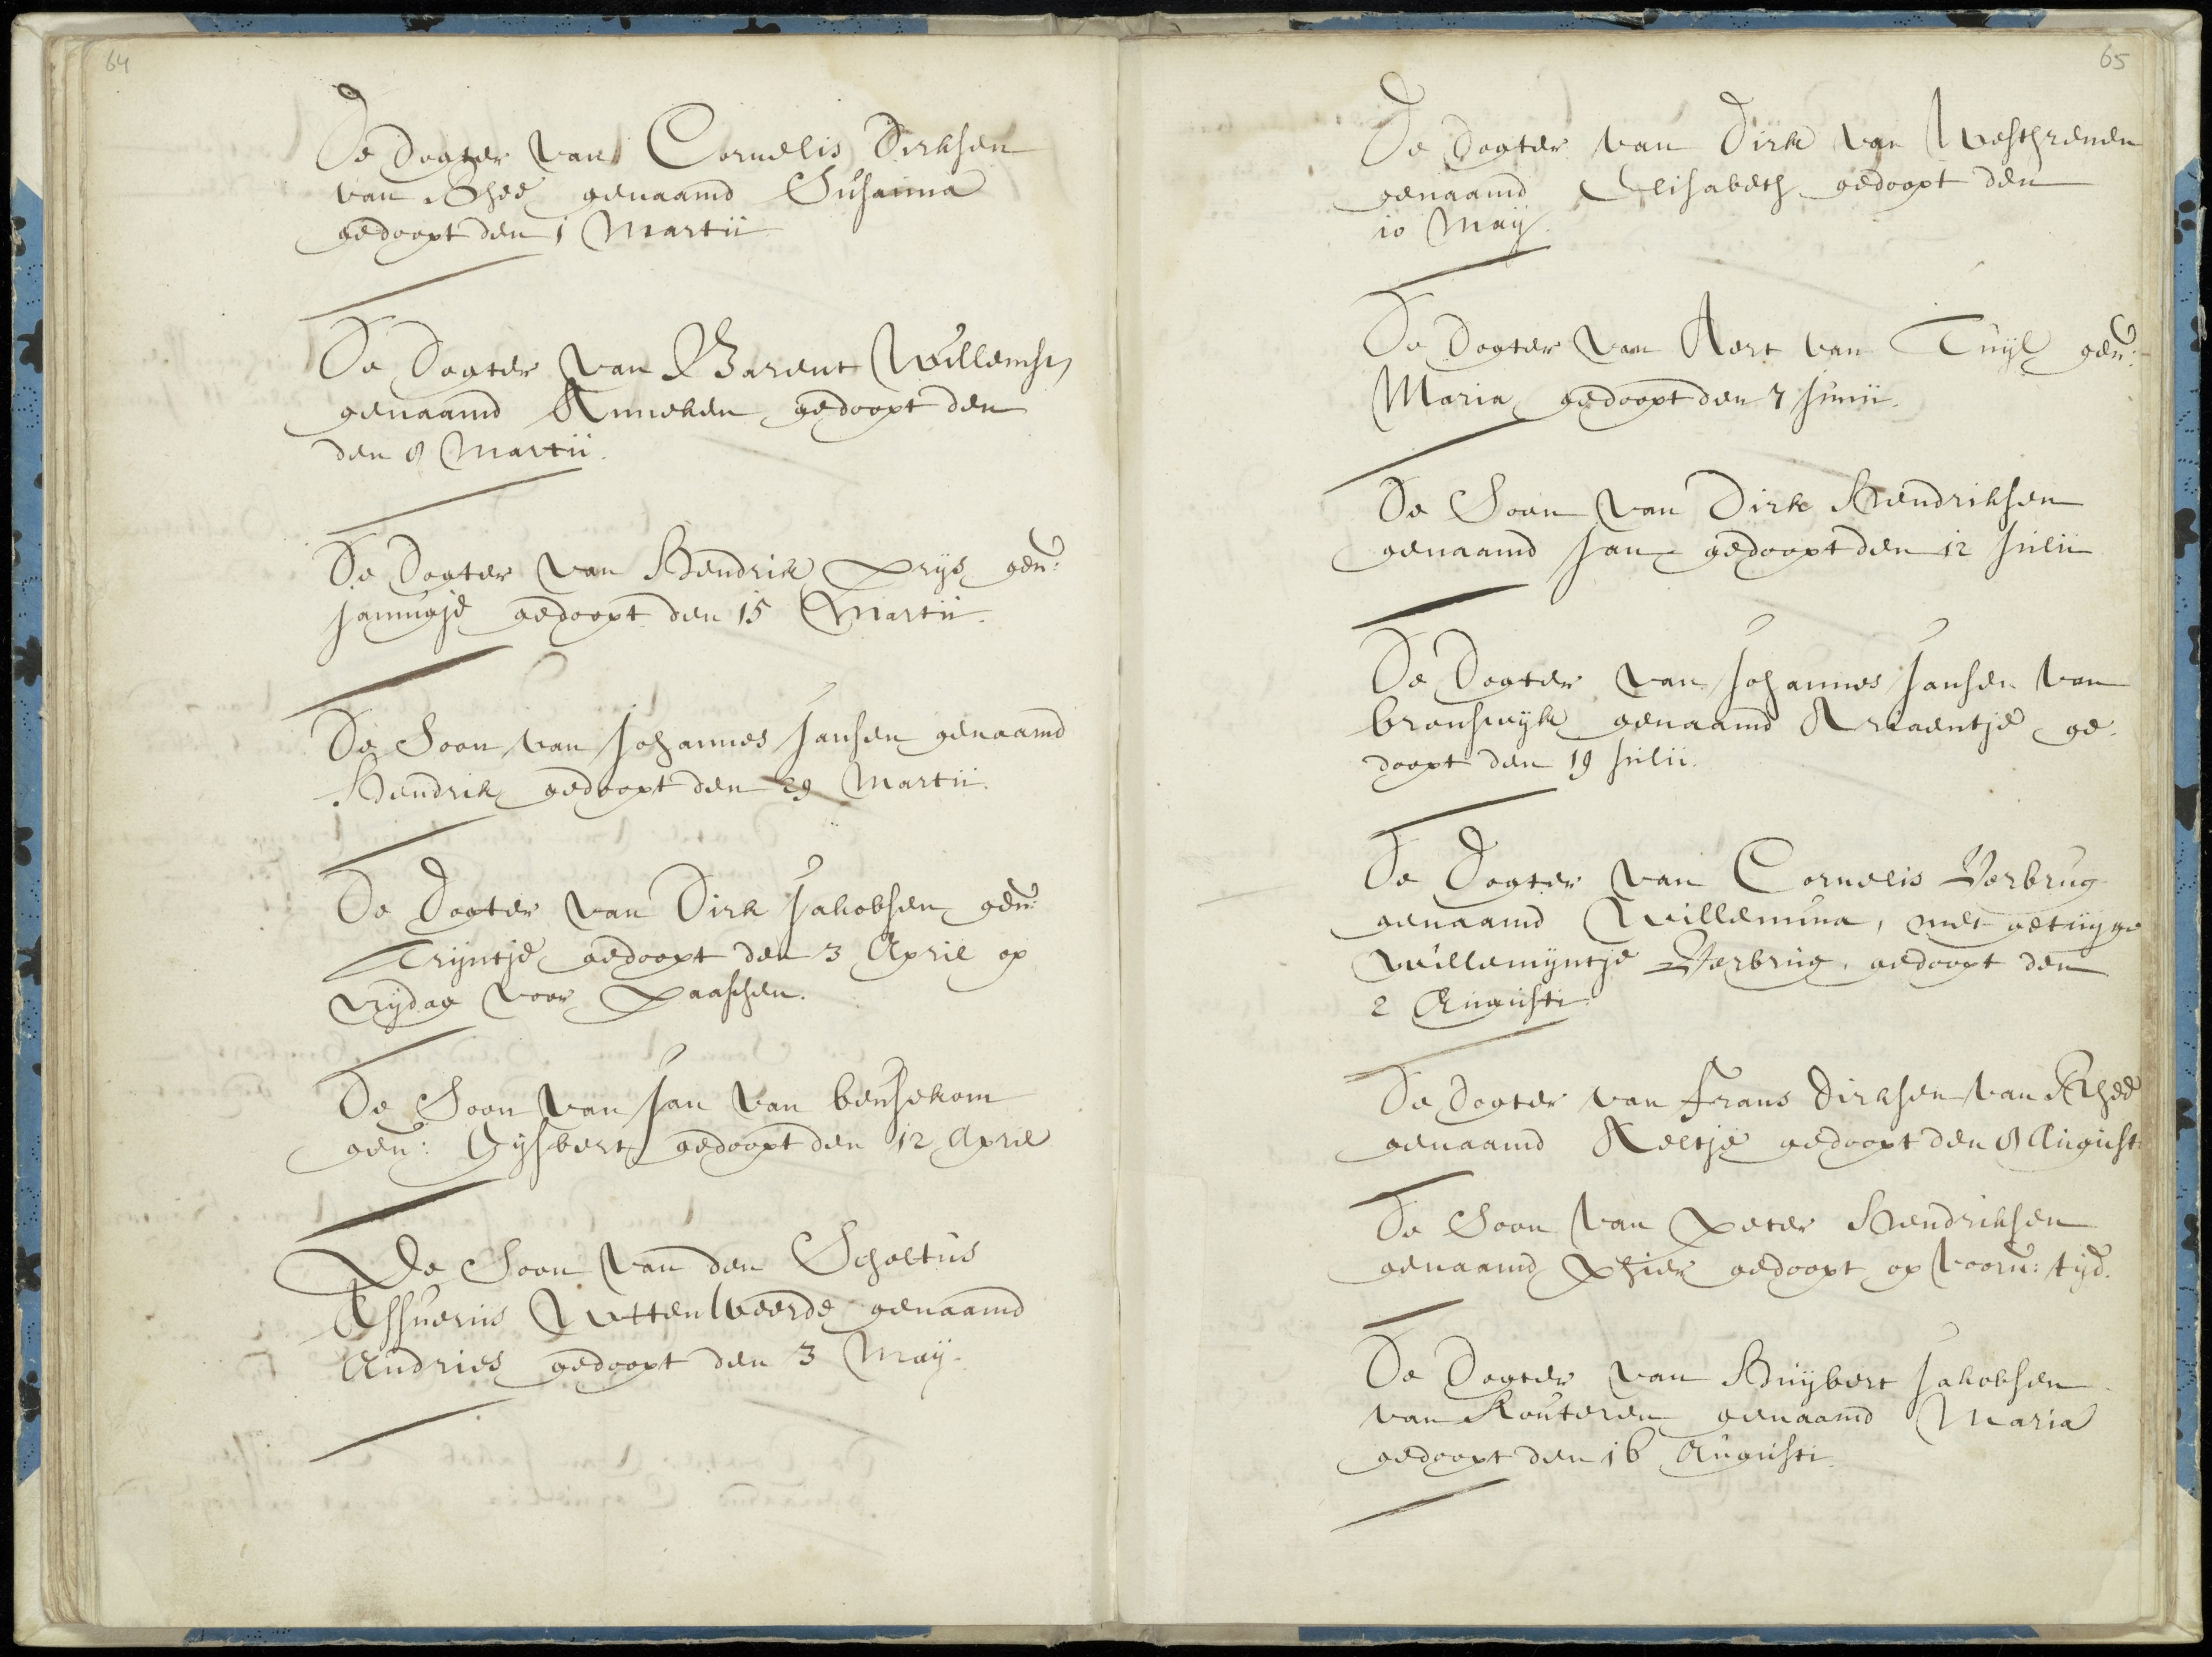 64
De Dogter van Cornelis Dirksen
van Rhee genaamd Susanna
gedoopt den 1 Martii
De Dogter van Barent Willemsn
genaamd Anneken gedoopt den
den 8 Martii.
De Dogter van Hendrik Prijs gen:
Jannigje gedoopt den 15 Martii.
De Soon van Johannes Jansen genaamd
Hendrik gedoopt den 29 Martii.
De Dogter van Dirk Jakobsen gen:
Trijntje gedoopt den 3 April op
vrijdag voor Paasschen.
De Soon van Jan van bennekom
gen: Gijsbert gedoopt den 12 April
De Soon van den Scholtus
Assuerus Wttenweerde genaamd
Andries gedoopt den 3 Maij.
65
De Dogter van Dirk van Westhrenen
genaamd Elisabeth gedoopt den
10 Maij.
De Dogter van Aert van Tuijl gen:
Maria gedoopt den 7 Junii.
De Soon van Dirk Hendriksen
genaamd Jan gedoopt den 12 Julii
De Dogter van Johannes Jansen van
bronswijk genaamd Ariaentje ge-
doopt den 19 Julii.
De Dogter van Cornelis Verbrug
genaamd Willemina, met getuijge
Willemijntje Verbrug, gedoopt den
2 Augusti
De Dogter van Frans Dirksen van Rhee
genaamd Neeltje gedoopt den 8 August:
De Soon van Peter Hendriksen
genaamd gedoopt op voorn: tijd.
De Dogter van Huijbert Jakobsen
van Kouteren genaamd Maria
gedoopt den 16 Augusti.